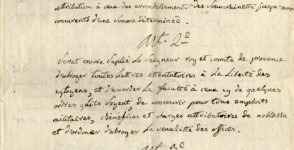 attribution à ceux des arrondissements des Sénéchaussées jusqu'aux
couvents d'une somme déterminée.
Art. 2d
Serat encore suplié Le seigneur roy et comte de provence
d'abroger toutes lettres attentatoires à La Liberté des
citoyens, et d'accorder La faculté à ceux cy de quelques
ordres qu'ils soyent de concourir pour tous emplois
militaires, Bénéfices et charges attributoires de noblesse
et d'ordonner d'abroger la venalité des offices.
Art. 3e